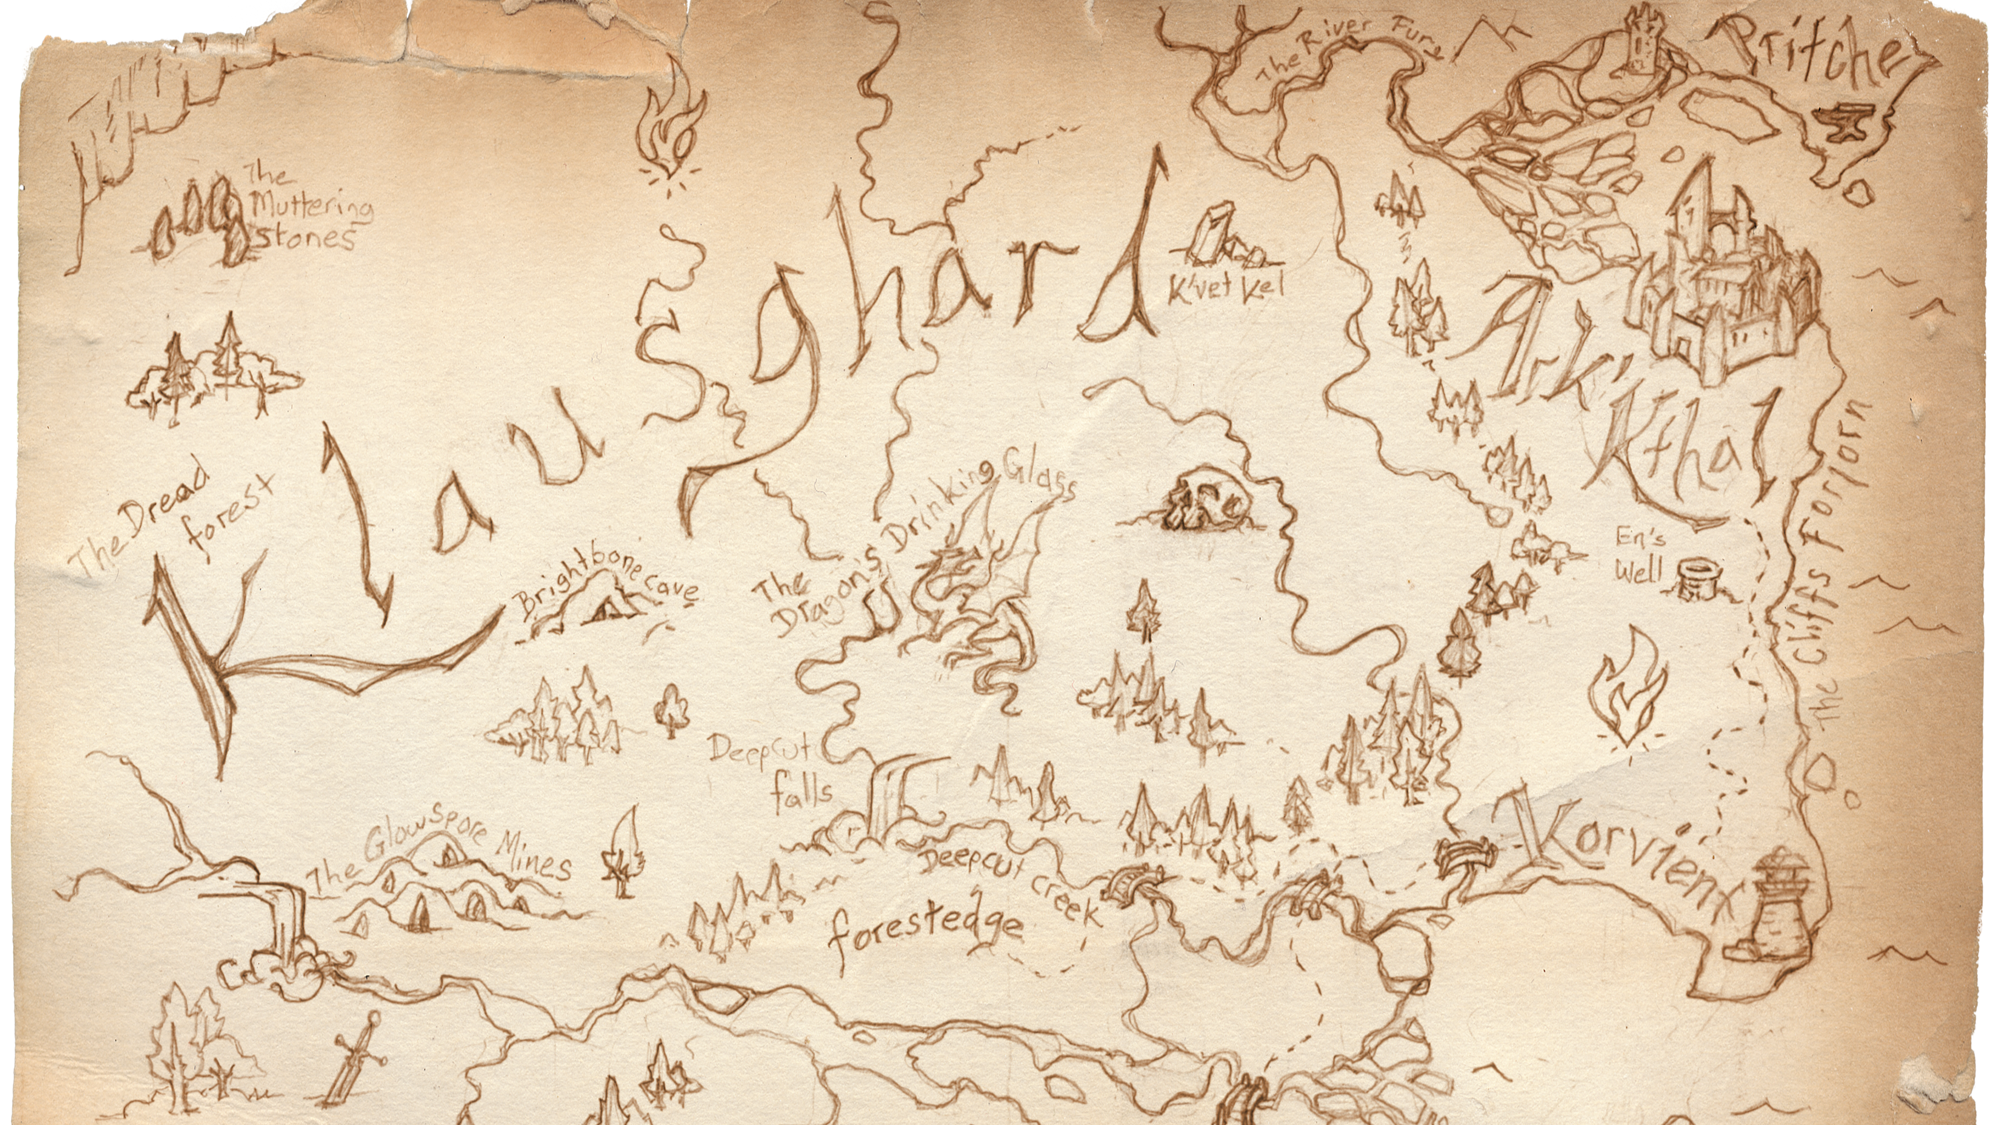 The River Fury
Pritche
The
Muttering
Stones
K'vet Kel
Klausghard
Ark'
Kthal
The Cliffs Forlorn
The Dread
forest
En's
Well
Brightbone cave
The
Dragon's Drinking Glass
Deepcut
falls
The Glowspore Mines
Deepcut creek
forestedge
Korvient